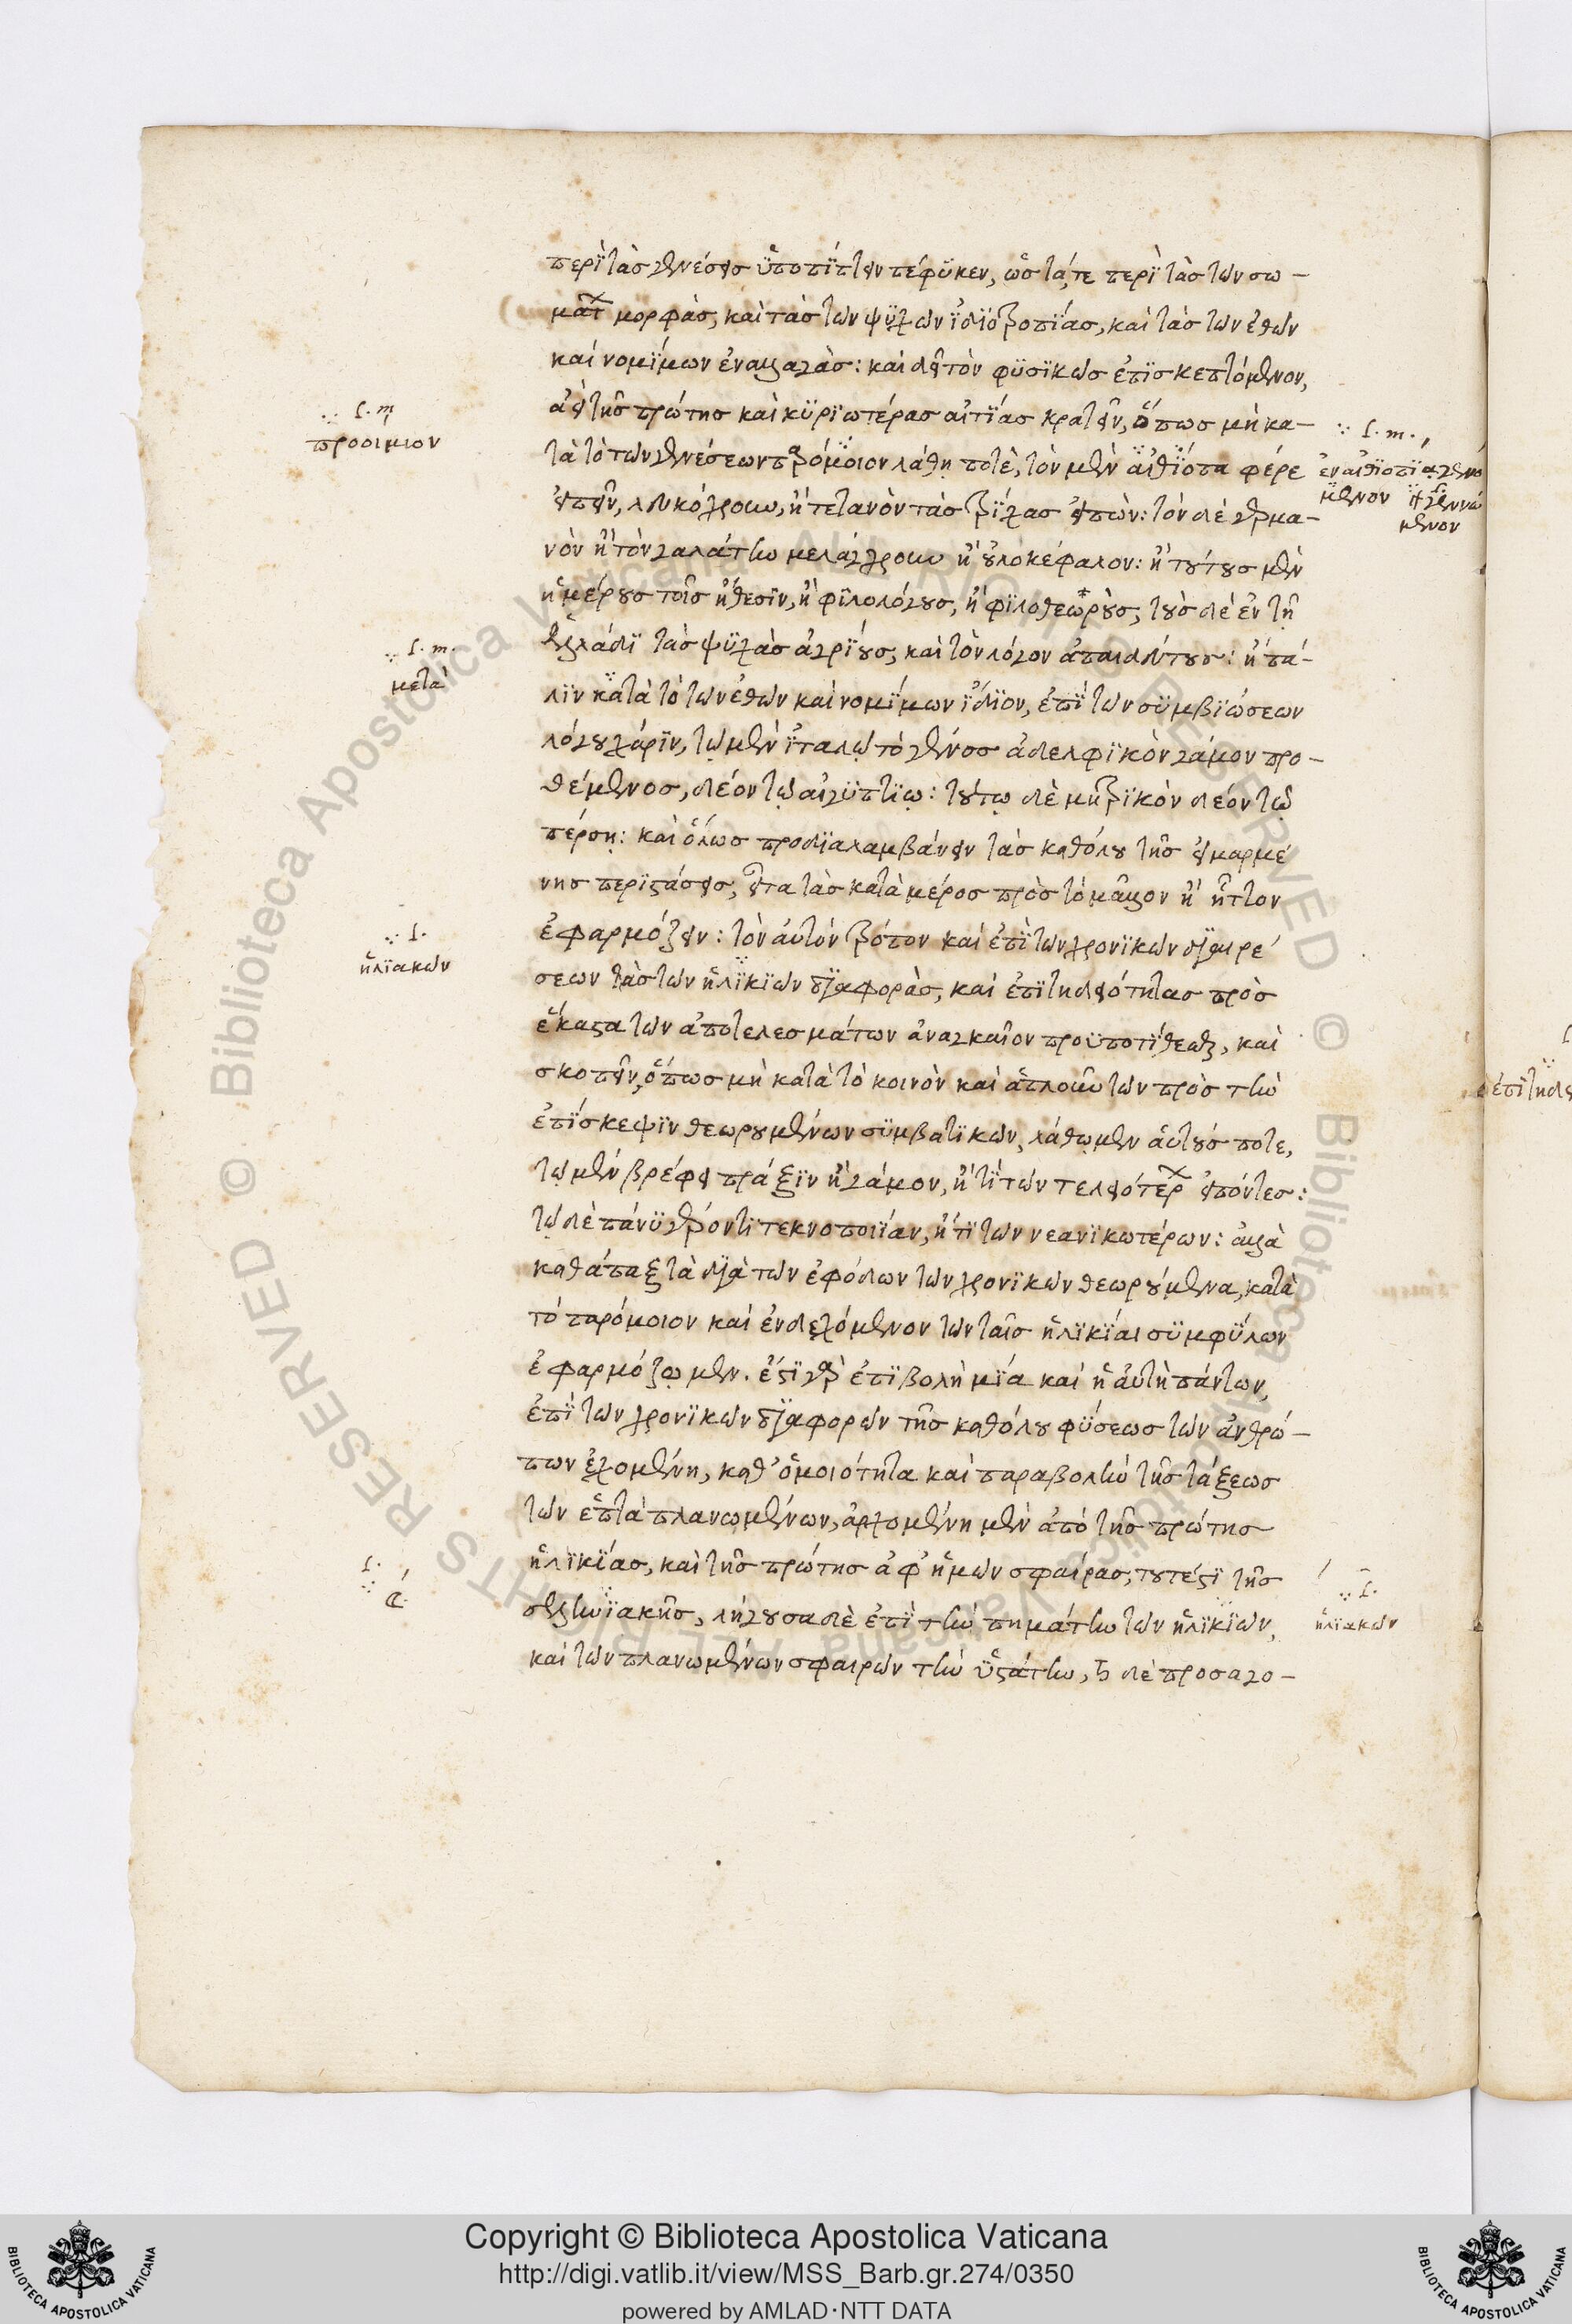 περὶ τὰς γενέσεις ὑποπίπτειν πέφυκεν, ὡς τά, τε περὶ τὰς τῶν σω-
μάτων μορφὰς, καὶ τὰς τῶν ψυχῶν ἰδιοτροπίας, καὶ τὰς τῶν ἐθῶν
καὶ νομίμων ἐναλλαγὰς: καὶ δεῖ τὸν φυσικῶς ἐπισκεπτόμενον,
ἀεὶ τῆς πρώτης καὶ κυριωτέρας αἰτίας κρατεῖν, ὅπως μὴ κα-
∴ s. m
προοιμιον
τὰ τὸ τῶν γενέσεων παρόμοιον λάθῃ ποτὲ, τὸν μὲν αἰθίοπα φέρε
∴ s. m.
ἐν αἰθιοπίᾳ γενό
μενον ἢ γεννώ
μενον
εἰπεῖν, λευκόχρουν, ἢ τετανὸν τὰς τρίχας εἰπὼν: τὸν δὲ γερμα-
νὸν ἢ τὸν γαλάτην μελάγχρουν ἢ οὐλοκέφαλον: ἢ τούτους μὲν
ἡμέρους τοῖς ἤθεσιν, ἢ φιλολόγους, ἢ φιλοθεώρους, τοὺς δὲ ἐν τῇ
ἑλλάδι τὰς ψυχὰς ἀγρίους, καὶ τὸν λόγον ἀπαιδεύτους: ἢ πά-
∴ s. m.
μετὰ
λιν κατὰ τὸ τῶν ἐθῶν καὶ νομίμων ἴδιον, ἐπὶ τῶν συμβιώσεων
λόγου χάριν, τῷ μὲν ἰταλῷ τὸ γένος ἀδελφικὸν γάμον προ-
θέμενος, δέον τῷ αἰγυπτίῳ: τούτῳ δὲ μητρικὸν δέον τῷ
πέρσῃ: καὶ ὅλως προδιαλαμβάνειν τὰς καθόλου τῆς εἱμαρμέ
νης περιστάσεις, εἶτα τὰς κατὰ μέρος πρὸς τὸ μᾶλλον ἢ ἧττον
ἐφαρμόζειν: τὸν αὐτὸν τρόπον καὶ ἐπὶ τῶν χρονικῶν διαιρέ
∴ s.
ἡλιακῶν
σεων τὰς τῶν ἡλικιῶν διαφορὰς, καὶ ἐπιτηδειότητας πρὸς
ἕκαστα τῶν ἀποτελεσμάτων ἀναγκαῖον προϋποτίθεσθαι, καὶ
σκοπεῖν, ὅπως μὴ κατὰ τὸ κοινὸν καὶ ἁπλοῦν τῶν πρὸς τὴν
ἐπίσκεψιν θεωρουμένων συμβατικῶν, λάθωμεν αὑτούς ποτε,
τῷ μὲν βρέφει πρᾶξιν ἢ γάμον, ἢ τὶ τῶν τελειοτέρων εἰπόντες:
τῷ δὲ πάνυ γέροντι τεκνοποιίαν, ἤ τι τῶν νεανικωτέρων: ἀλλὰ
καθάπαξ τὰ διὰ τῶν ἐφόδων τῶν χρονικῶν θεωρούμενα, κατὰ
τὸ παρόμοιον καὶ ἐνδεχόμενον τῶν ταῖς ἡλικίαι συμφύλων
ἐφαρμόζωμεν. ἔστι γὰρ ἐπιβολὴ μία καὶ ἡ αὐτὴ πάντων,
ἐπὶ τῶν χρονικῶν διαφορῶν τῆς καθόλου φύσεως τῶν ἀνθρώ-
πων ἐχομένη, καθ' ὁμοιότητα καὶ παραβολὴν τῆς τάξεως
τῶν ἑπτὰ πλανωμένων, ἀρχομένη μὲν ἀπὸ τῆς πρώτης
ἡλικίας, καὶ τῆς πρώτης ἀφ' ἡμῶν σφαίρας, τουτέστι τῆς
s.
∴ α.
σεληνιακῆς, λήγουσα δὲ ἐπὶ τὴν πημάτην τῶν ἡλικιῶν,
∴ s.
ἡλιακῶν
καὶ τῶν πλανωμένων σφαιρῶν τὴν ὑστάτην, ♄ δὲ προσαγο-
Copyright © Biblioteca Apostolica Vaticana
http://digi.vatlib.it/view/MSS_Barb.gr.274/0350
powered by AMLAD·NTT DATA